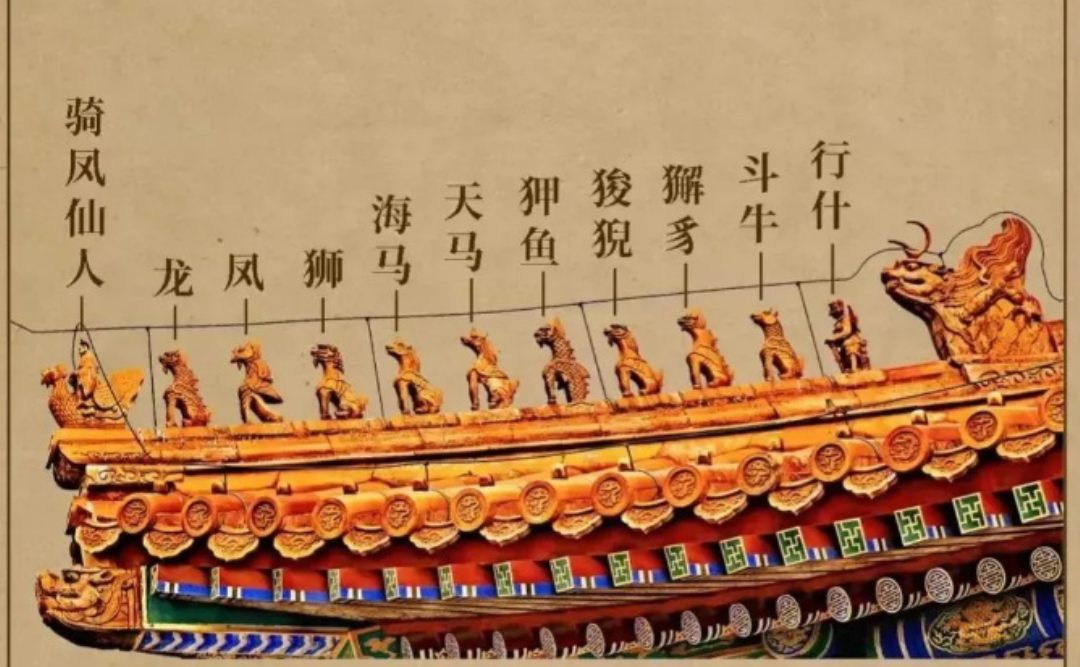 骑凤仙人
龙
凤
狮
海马
天马
狎鱼
狻猊
獬豸
斗牛
行什